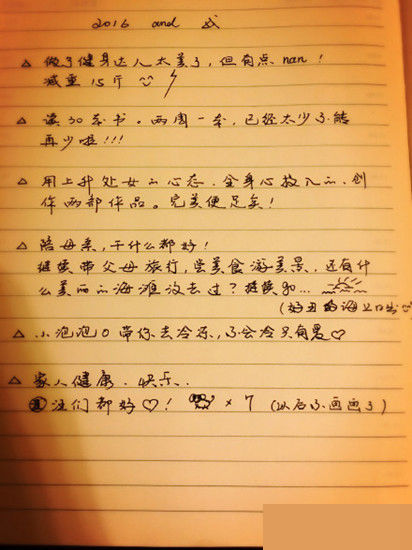 2016 and 我
△ 做了健身达人太美了，但有点nan！
减重15斤
△ 读30本书。两周一本，已经太少了能
再少啦！！！
△ 用上升处女的心态，全身心投入的，创
作两部作品。完美便足矣！
△ 陪母亲，干什么都好！
继续带父母旅行，尝美食游美景，还有什
么美丽的海滩没去过？继续
(好丑的海上日出
△ 小泡泡 带你去冷
△ 家人健康．快乐．
汪们都好♡！ × 7 (以后不画画了)